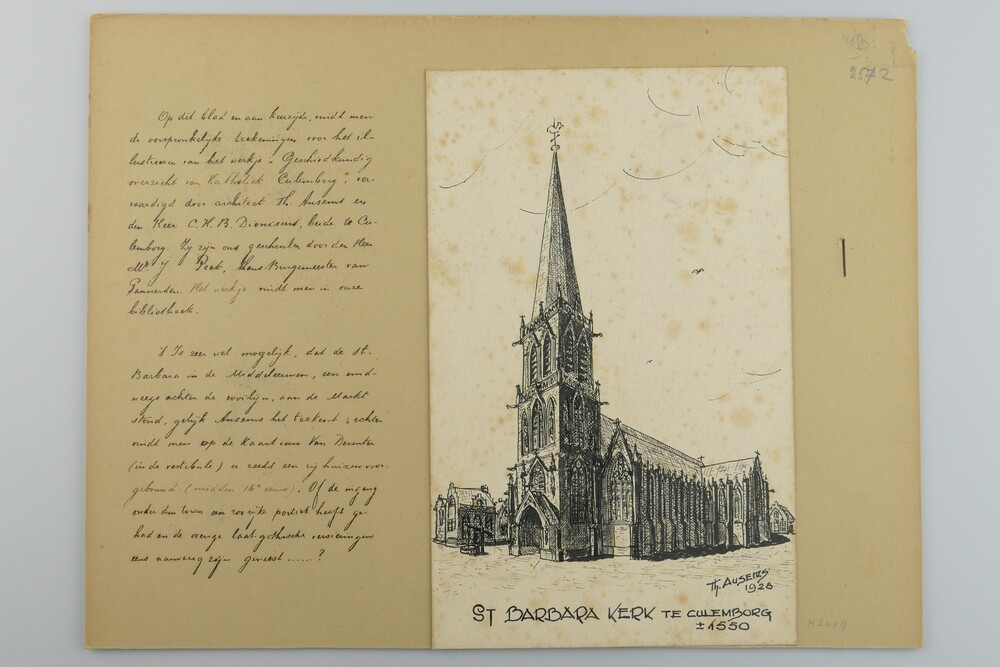 Op dit blad en aan keerzijde, vindt men
de oorspronkelijke teekeningen voor het il-
lustreeren van het werkje "Geschiedkundig
overzicht van Katholiek Culemborg", ver-
vaardigd door architect Th. Ausems en
den Heer C. H. B. Dionisius, beide te Cu-
lemborg. Zij zijn ons geschonken door den Heer
Mr. J Peek, thans Burgemeester van
Pannerden. Het werkje vindt men in onze
bibliotheek.
't Is zeer wel mogelijk, dat de St.
Barbara in de Middeleeuwen, een eind-
weegs achter de rooilijn, aan de Markt
stond, gelijk Ausems het teekent; echter
vindt men op de Kaart van Van Deventer
(in de vestibule) er reeds een rij huizen voor-
gebouwd (midden 16e eeuw). Of de ingang
onder den toren een zoo rijke portiek heeft ge-
had en de overige laat-gothische versieringen
eens aanwezig zijn geweest ......?
2572
Th. AUSEMS
1928
ST BARBARA KERK TE CULEMBORG
± 1550